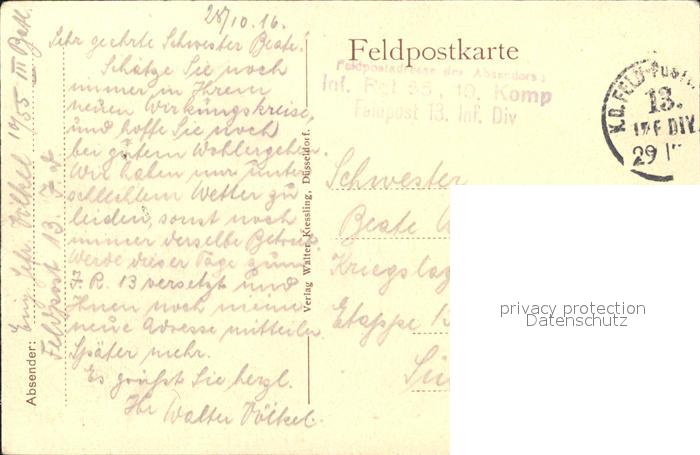 28/10.16.
Sehr geehrte Schwester Beate!
Schätze Sie noch
immer in Ihrem
neuen Wirkungskreise,
und hoffe Sie noch
bei gutem Wohlergehn.
Wir haben nur unter
schlechtem Wetter zu
leiden, sonst noch
immer derselbe
Werde dieser Tage zum
R. 13 versetzt und
Ihnen noch meine
neue Adresse mitteilen
Später mehr.
Es grüsst Sie herzl.
Ihr Walter Völkel.
Absender: Völkel 10/55 III Batl.
Feldpost 13.
Verlag Walter Kiessling, Düsseldorf.
Feldpostkarte
Feldpostadresse des Absenders:
Inf. Rgt 55, 10. Komp
Feldpost 13. Inf. Div
K.D. FELD-POST
13.
INF DIV.
29
Schwester
Beate
Kriegslaz
Etappe
privacy protection
Datenschutz